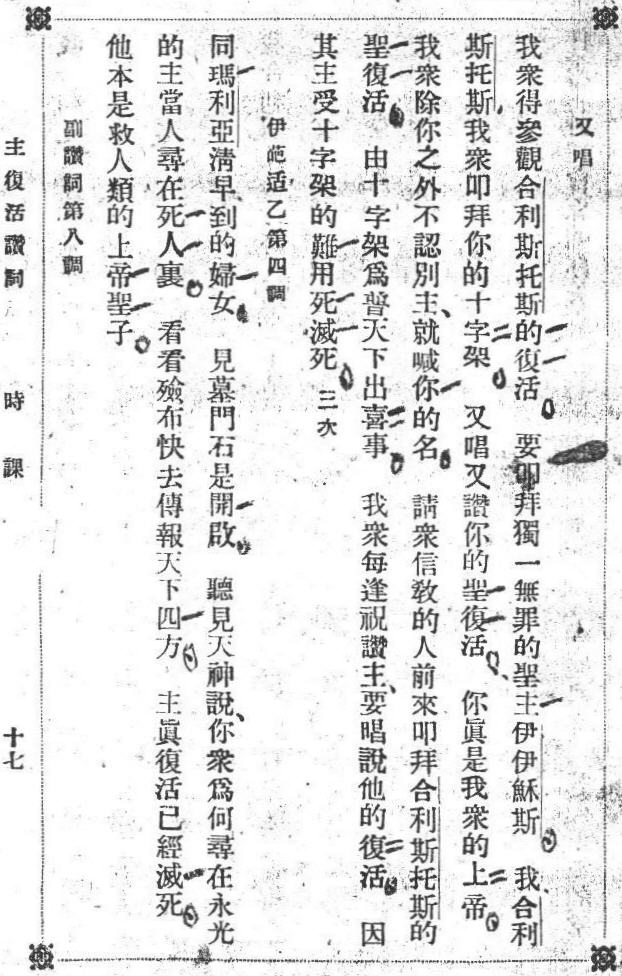 又唱
我衆得參觀合利斯托斯的復活 要叩拜獨一無罪的聖主伊伊穌斯 我合利
斯托斯我衆叩拜你的十字架 又唱又讚你的聖復活 你眞是我衆的上帝
我衆除你之外不認別主、就喊你的名 請衆信教的人前來叩拜合利斯托斯的
聖復活 由十字架爲普天下出喜事 我衆每逢祝讚主、要唱說他的復活 因
其主受十字架的難用死滅死 三次
伊葩适乙第四調
同瑪利亞淸早到的婦女 見墓門石是開啟 聽見天神說、你衆爲何尋在永光
的主當人尋在死人裏 看看殮布快去傳報天下四方 主眞復活已經滅死
他本是救人類的上帝聖子
副讚詞第八調
主復活讚詞 時課 十七